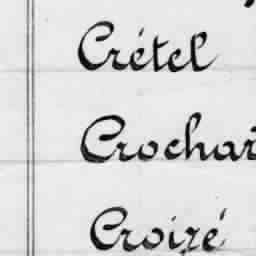 Crétel
Crochar
Croizé